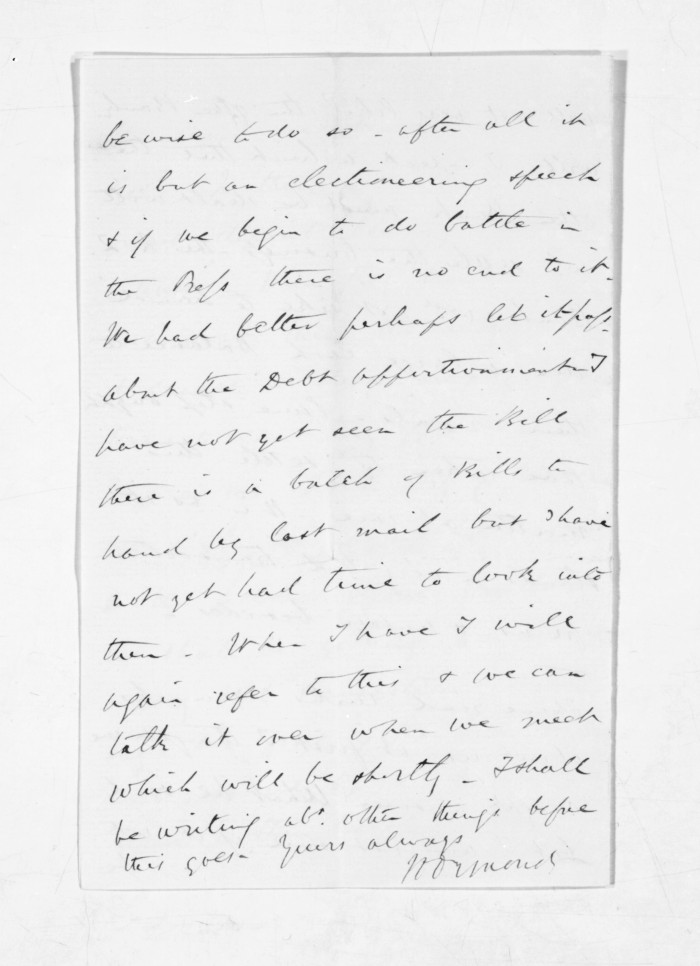 be wise to do so - after all it
is but an electioneering speech
& if we begin to do battle in
the Press there is no end to it.
We had better perhaps let it pass.
about the Debt apportionment I
have not yet seen the Bill
there is a batch of Bills to
hand by last mail but I have
not yet had time to look into
them - When I have I will
again refer to this & we can
talk it over when we meet
which will be shortly - I shall
be writing abt. other things before
this goes - Yours always
JDOrmond